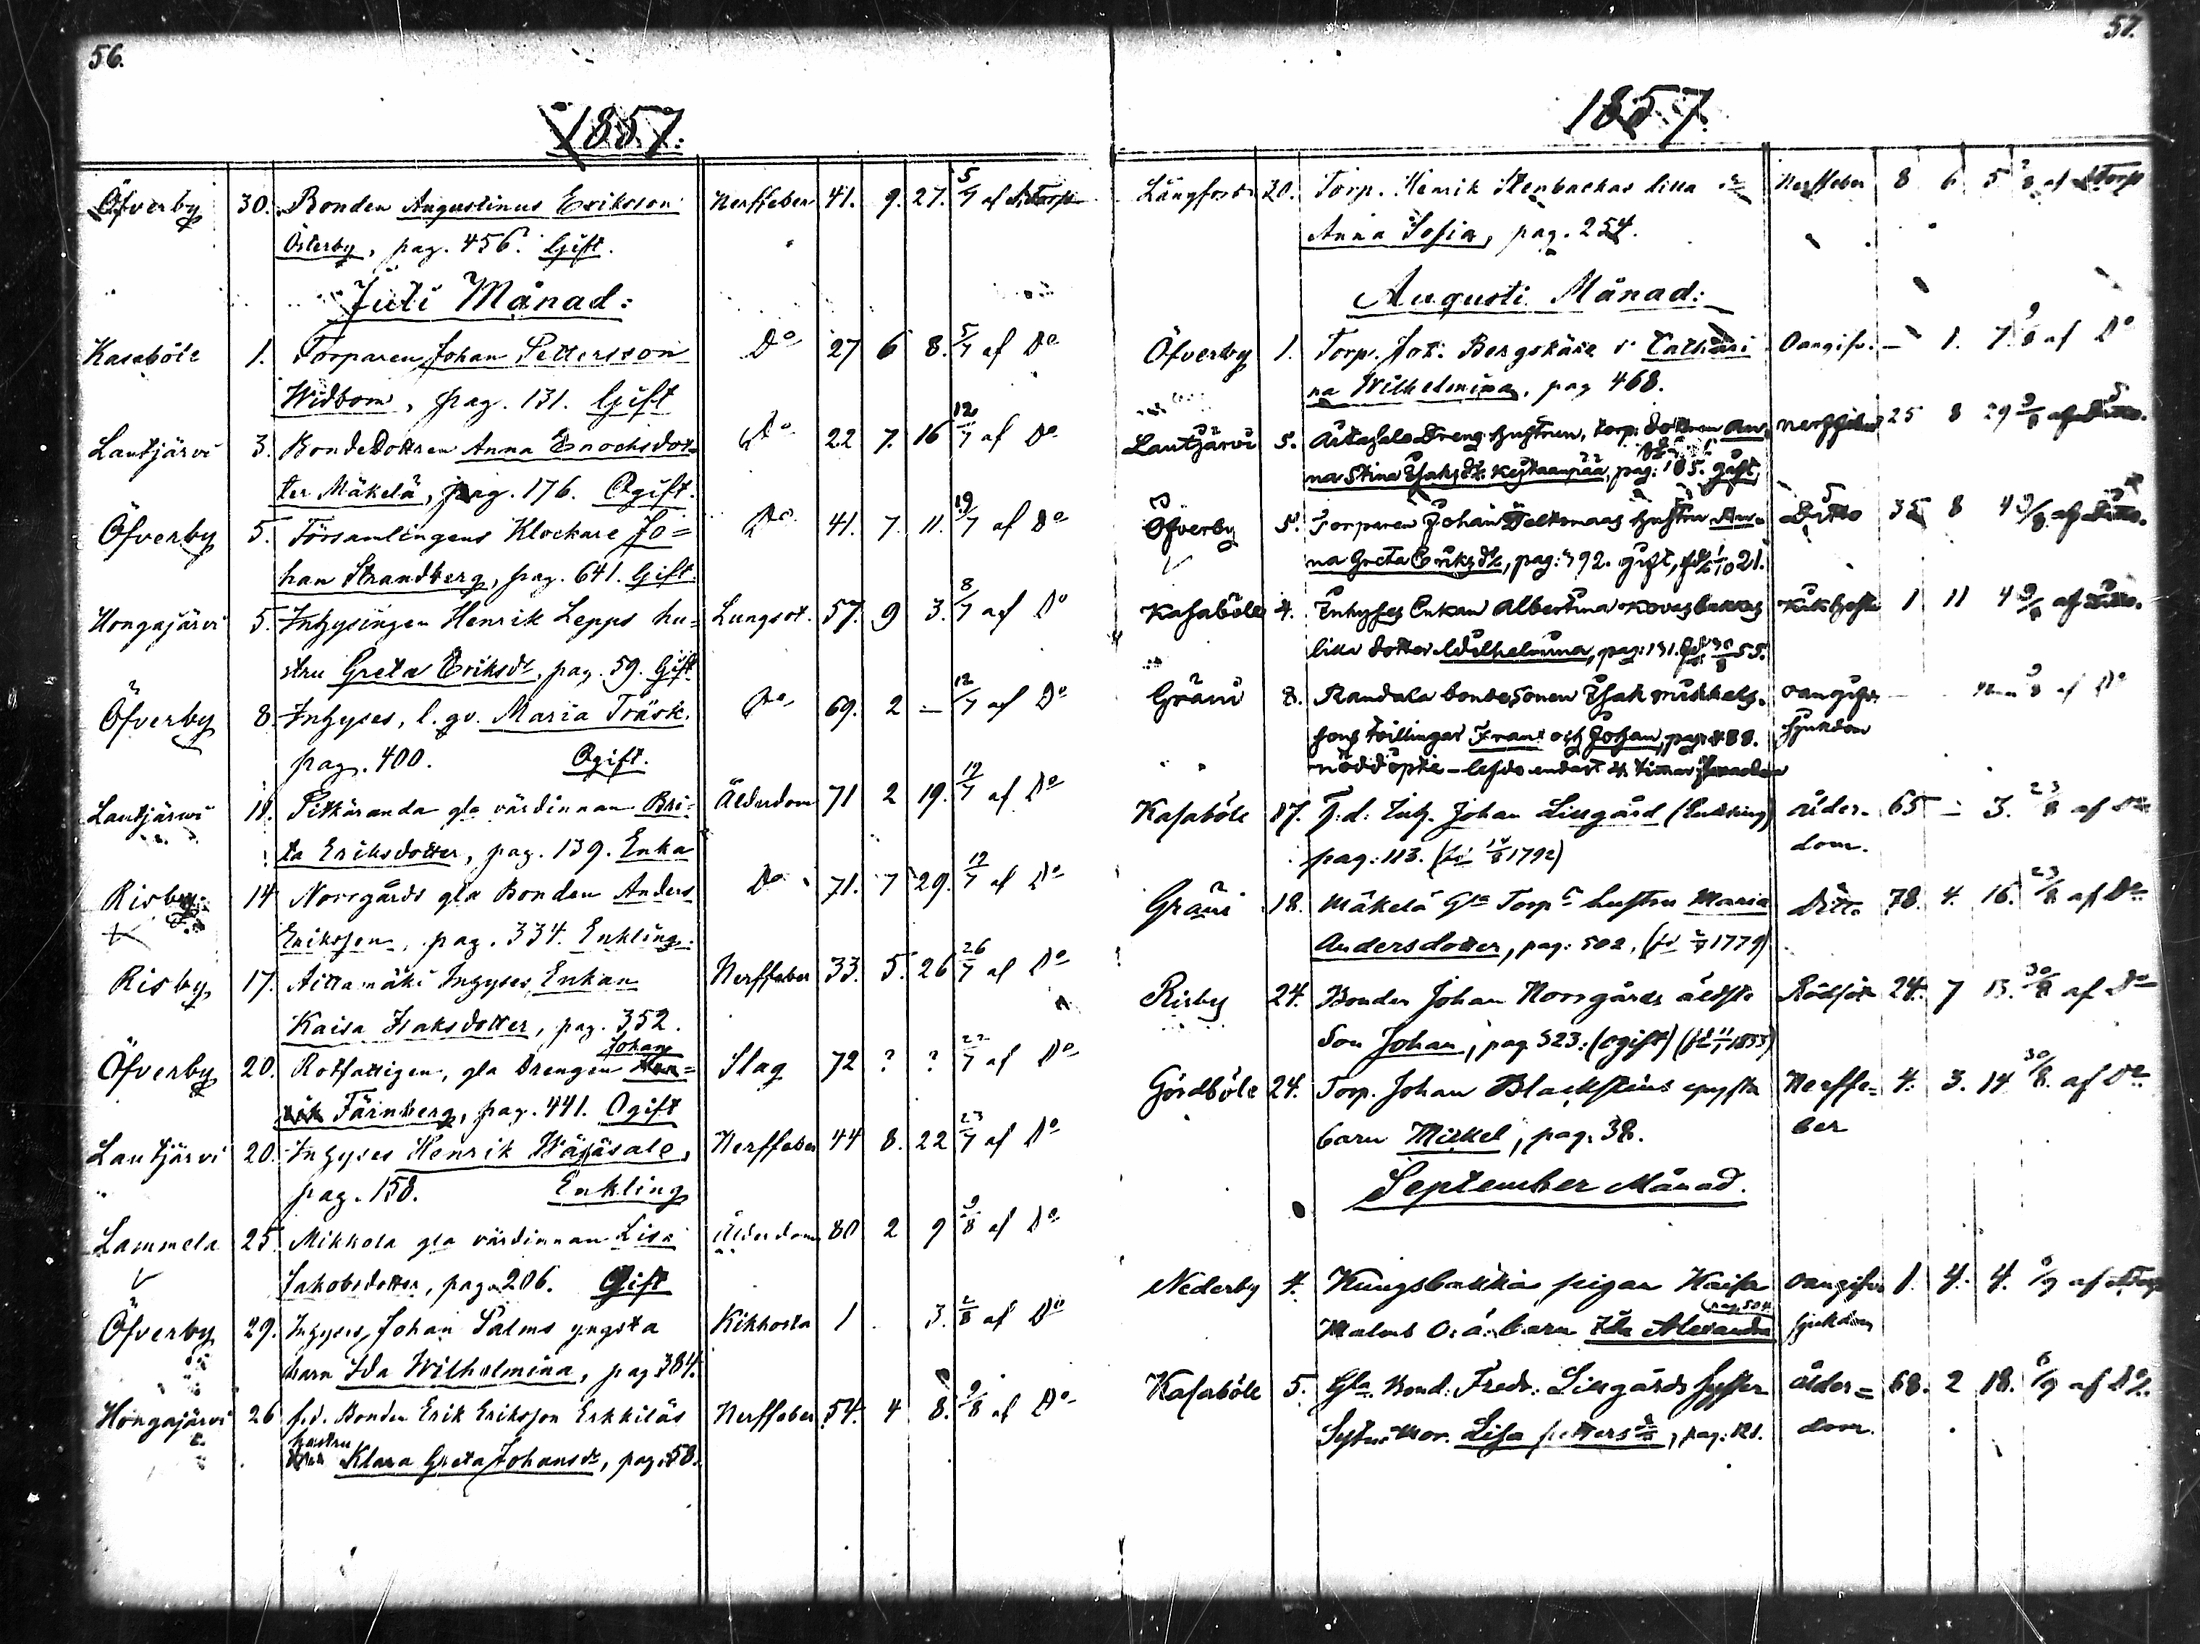 56.
1857.
Öfverby 30. Bonden Augustinus Eriksson Nerffeber 41. 9. 27. 5/7 af
Österby, pag. 456. Gift.
Juli Månad:
Kasaböle 1. Torparen Johan Pettersson Do 27 6 8. 5/7 af Do
Widbom, pag. 131. Gift
Lautjärvi 3. Bondedottren Anna Enochsdot- Do 22 7. 16 12/7 af Do
ter Mäkelä, pag. 176. Ogift.
Öfverby 5. Församlingens Klockare Jo= Do 41. 7. 11. 19/7 af Do
han Strandberg, pag. 641. Gift.
Hongajärvi 5. Inhysingen Henrik Lepps hu= Lungsot. 57. 9 3. 8/7 af Do
stru Greta Eriksdr, pag. 59. Gift
Öfverby 8. Inhyses, l. gv. Maria Träsk. Do 69. 2 — 12/7 af Do
pag. 400. Ogift.
Lautjärvi 11. Pitkäranda gla värdinnan Bri- Ålderdom 71 2 19. 19/7 af Do
ta Eriksdotter, pag. 139. Enka
Risby 14 Norrgårds gla Bonden Anders Do 71. 7 29. 19/7 af Do
Eriksson, pag. 334. Enkling.
Risby 17. Aittamäki Inhyses Enkan Nerffeber 33. 5. 26 26/7 af Do
Kaisa Isaksdotter, pag. 352.
Johan
Öfverby 20. Rotfattigen, gla Drengen Slag 72 ? ? 22/7 af Do
Färnberg, pag. 441. Ogift
Lautjärvi 20. Inhyses Henrik Wäjäsalo, Nerffeber 44 8. 22 23/7 af Do
pag. 158. Enkling
Lammela 25. Mikkola gla värdinnan Lisa Ålderdom 80 2 9 9/8 af Do
Jakobsdotter, pag. 206. Gift
Öfverby 29. Inhyses Johan Salms yngsta Kikhosta 1 3. 2/8 af Do
barn Ida Wilhelmina, pag 384.
Hongajärvi 26 f.d. Bonden Erik Eriksson Erkkiläs Nerffeber 54. 4 8. 9/8 af Do
hustru
Klara Greta Johansdr, pag. 58.
57.
1857.
Långfors 20. Torp. Henrik Stenbackas lilla Nerffeber 8 6 5 2/8 af
Anna Sofia, pag. 254.
Augusti Månad:
Öfverby 1. Torp. Joh. Bergskäre d. Cathari Oangifv. — 1. 7 9/8 af Do
na Wilhelmina, pag 468.
Lautjärvi 5. Aitasalo Dreng hustrun, torp. dottren An- nerffeber 25 8 29 9/8 af
na Stina Isaksdr. pag: 185. gift,
Öfverby 5. Torparen Johan hustru An- Ditto 35 8 4 9/8 af Ditto.
na Greta Eriksdr, pag: 392. gift,
Kasaböle 4. Inhyses Enkan Albertina Kikhosta 1 11 4 9/8 af Ditto.
lilla dotter Wilhelmina, pag: 131.
Gräni 8. Randala bondesonen Isak Mikkels- oangifv. — 9/8 af Do
sons tvillingar Frans och Johan, pag. 488. sjukdom
nöddöpte - lefde endast
Kasaböle 17. F.d. Inh. Johan Lillgård (Enkling) ålder- 65 — 3. 23/8 af Do
pag: 113. 1792) dom.
Gräni 18. Mäkelä Gla Torp: hustru Maria Ditto 78. 4. 16. 23/8 af Do
Andersdotter, pag: 502, 1779)
Risby 24. Bonden Johan Norrgårds äldste Rödsot 24. 7 13. 30/8 af Do
Son Johan, pag 323: (ogift) 1833)
Gördböle 24. Torp. Johan Blackstens yngsta Nerffe- 4. 3. 14 30/8. af Do
barn Mickel, pag. 38. ber
September Månad.
Nederby 4. Kungsbakka pigan Kaisa oangifven 1. 4. 4. 6/9 af
Malms O: ä: barn Ida Alexandra sjukdom
Kasaböle 5. Gla Bond: Fredr. Lillgårds Syster ålder= 68. 2 18. 6/9 af Do.
Lisa Pettersdr, pag: 121. dom.